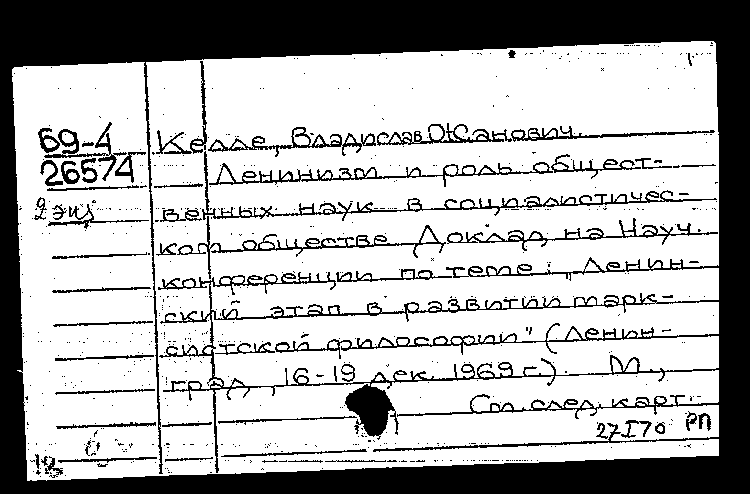 69-4 Келле, Владислав Жанович.
26574 Ленинизм и роль общест-
2 экз венных наук в социалистичес-
ком обществе Доклад на Науч.
конференции по теме: „Ленин-
ский этап в развитии марк-
систской философии" (Ленин-
град, 16-19 дек. 1969 г.) М.,
См. след. карт.
27 I 70 РП